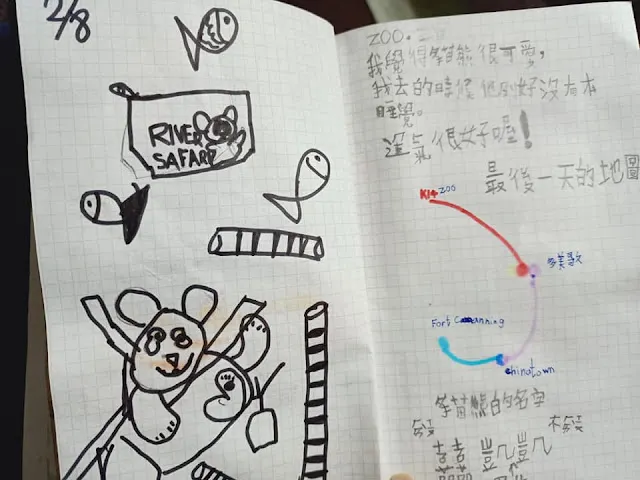 2/8
RIVER
SAFARI
ZOO.
我覺得貓熊很可愛,
我去的時候他剛好沒有在
睡覺。
運氣很好喔!
最後一天的地圖
K14 ZOO
多美歌
Fort Canning
Chinatown
貓熊的名字
凱凱